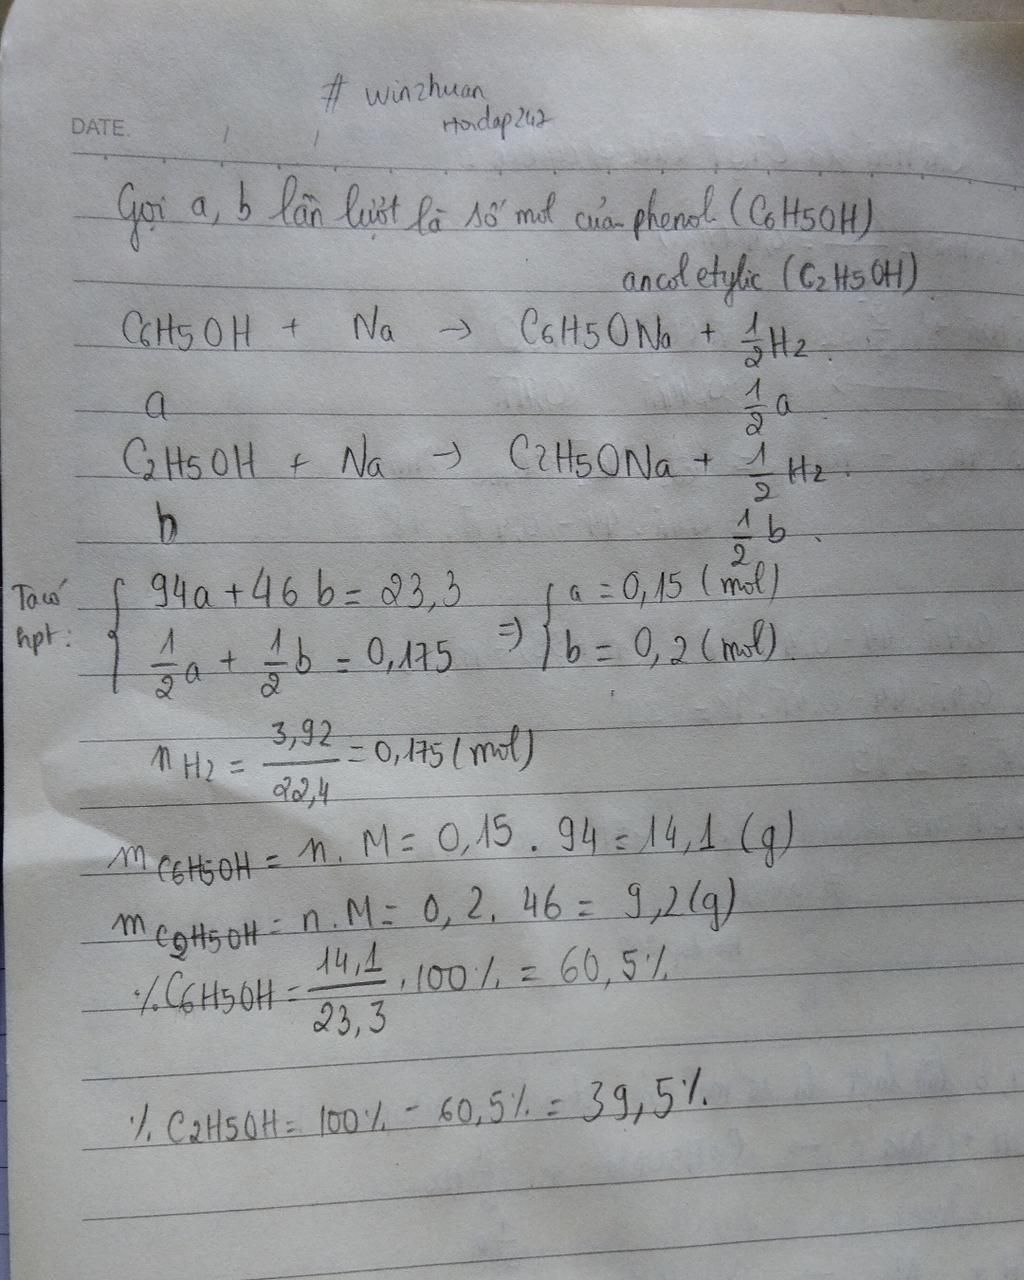 # winzhuan
Hoidap247
DATE. / /
Gọi a, b lần lượt là số mol của phenol (C6H5OH)
ancol etylic (C2H5OH)
C6H5OH + Na → C6H5ONa + 1/2 H2.
a 1/2 a
C2H5OH + Na → C2H5ONa + 1/2 H2.
b 1/2 b.
Ta có hpt: { 94a + 46b = 23,3 ⇒ { a = 0,15 (mol)
1/2 a + 1/2 b = 0,175 b = 0,2 (mol).
n H2 = 3,92/22,4 = 0,175 (mol)
m C6H5OH = n. M = 0,15 . 94 = 14,1 (g)
m C2H5OH = n.M = 0,2. 46 = 9,2 (g)
% C6H5OH = 14,1/23,3 . 100% = 60,5%
% C2H5OH = 100% - 60,5% = 39,5%